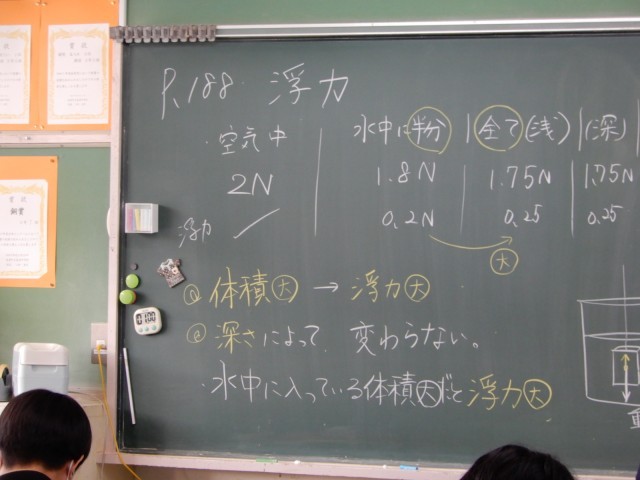 賞状
賞状
賞状
銅賞
P.188. 浮力
・空気中 | 水中に半分 | 全て(浅) | (深)
2N | 1.8N | 1.75N | 1.75N
浮力 ✓ 0.2N | 0.25 | 0.25
大
体積大 → 浮力大
深さによって、変わらない。
・水中に入っている体積大だと浮力大